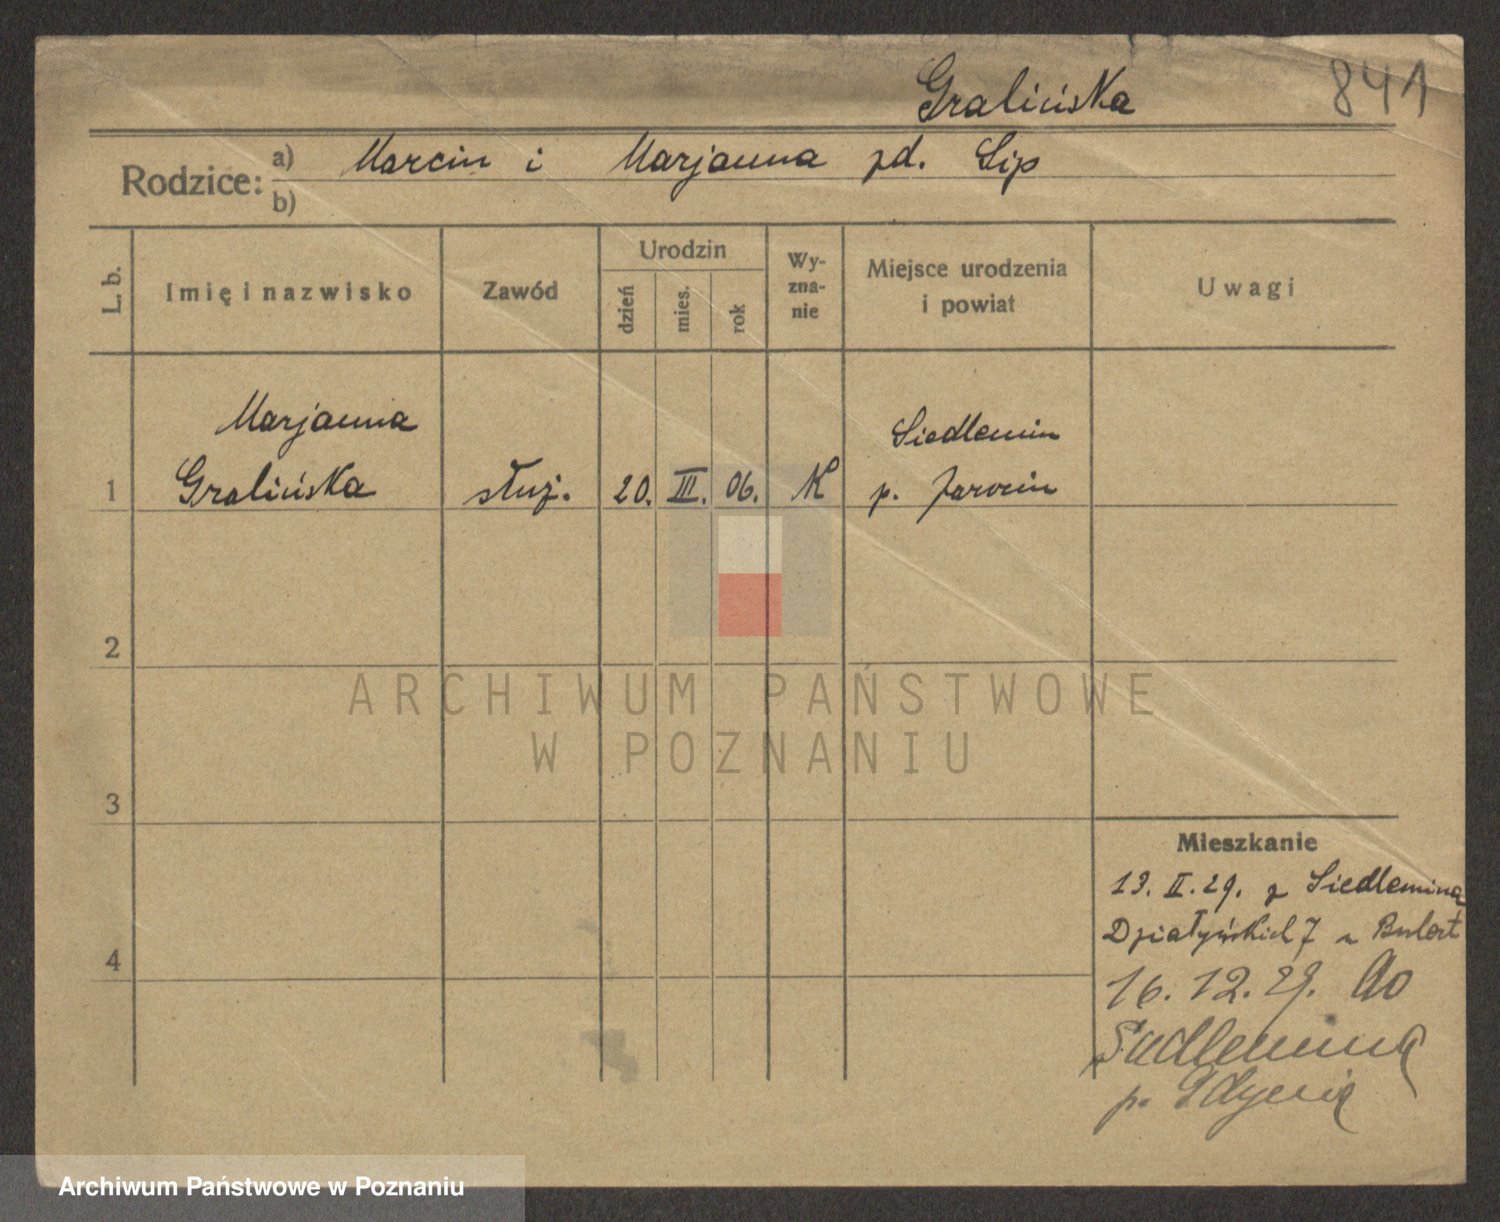 Gralińska 841
Rodzice: a) Marcin i Marjanna zd. Lip
b)
L. b. Imię i nazwisko Zawód Urodzin dzień mies. rok Wy-zna-nie Miejsce urodzenia i powiat Uwagi
Marjanna Siedlemin
1 Gralińska służ. 20. III. 06. K p. Jarocin
2
ARCHIWUM PAŃSTWOWE
W POZNANIU
3
Mieszkanie
19. II. 29. z Siedlemina
Działyńskich 7
4
16. 12. 29. do
Siedlemina
p.
Archiwum Państwowe w Poznaniu